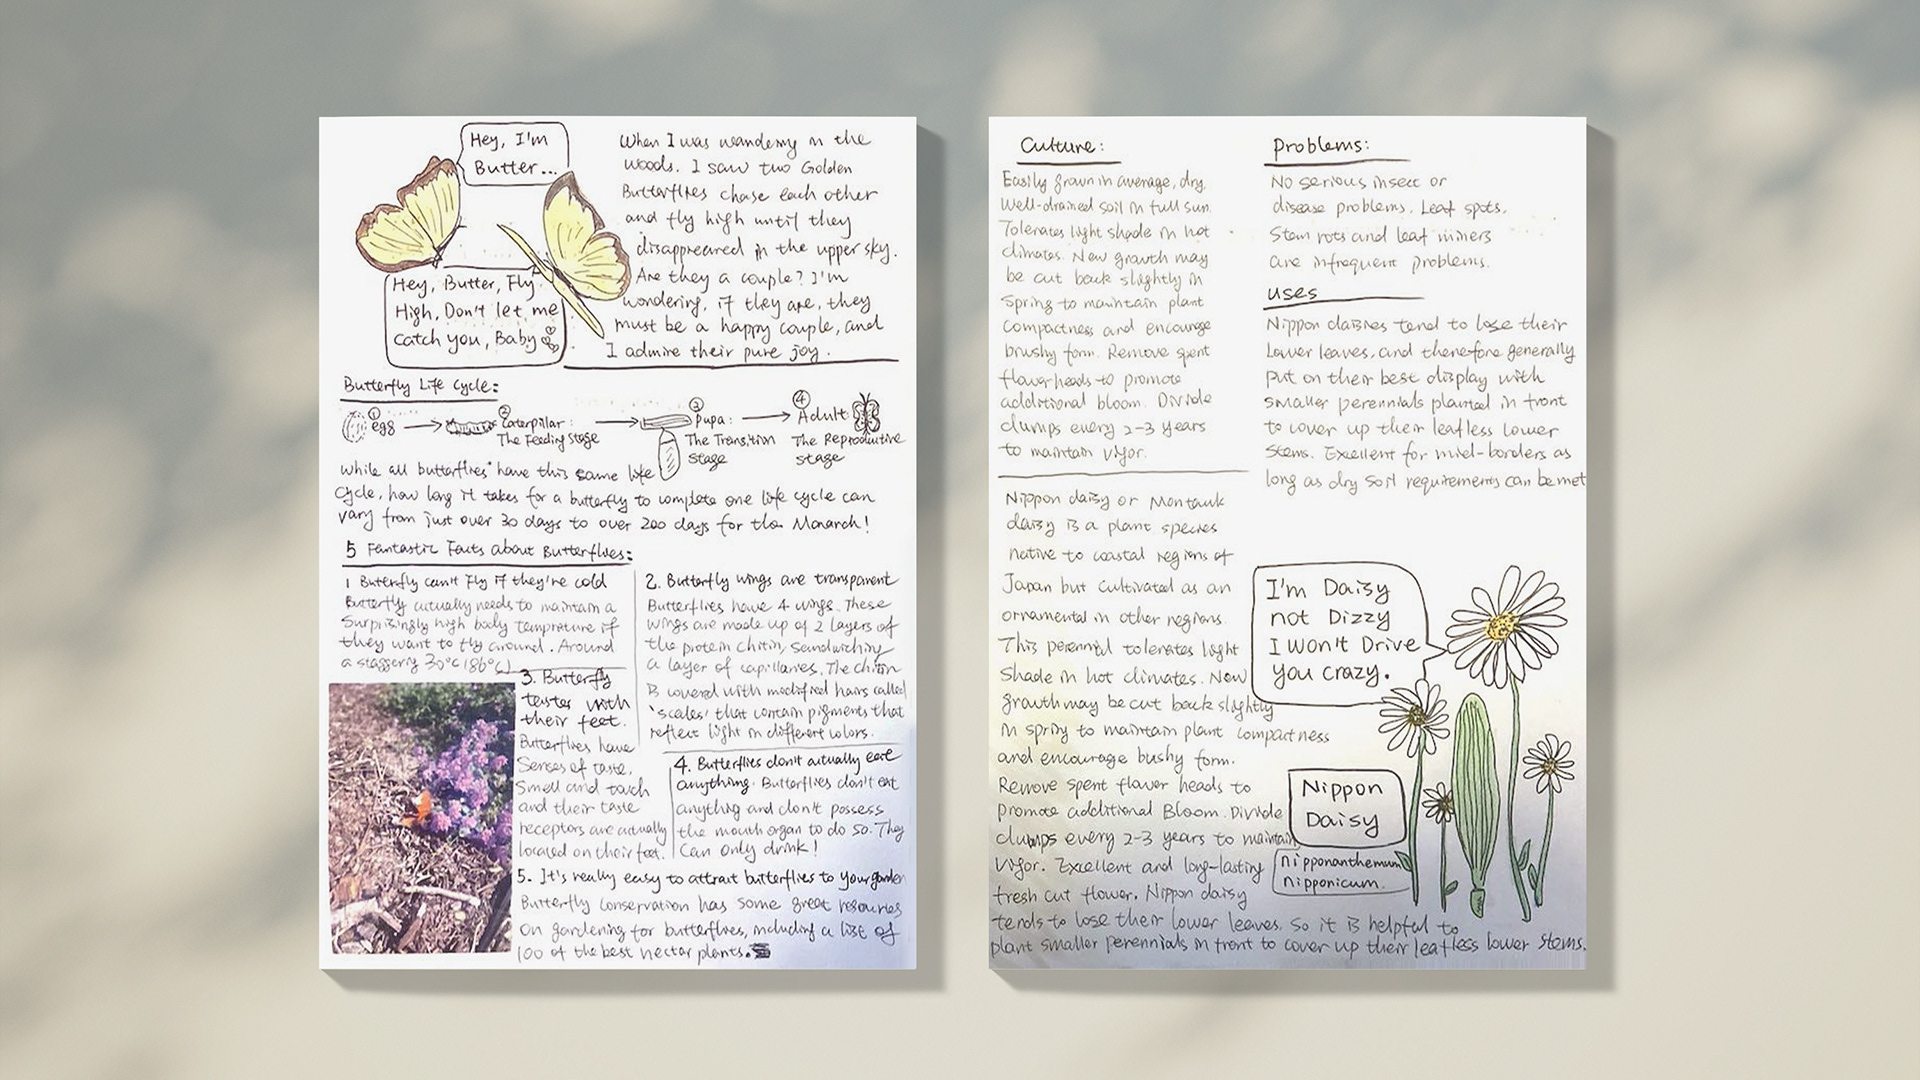 Hey, I'm
Butter...
Hey, Butter, Fly
High, Don't let me
catch you, Baby
When I was wandering in the
woods. I saw two Golden
Butterflies chase each other
and fly high until they
disappreared in the upper sky.
Are they a couple? I'm
wondering, if they are, they
must be a happy couple, and
I admire their pure joy.
Butterfly Life Cycle:
① egg
② Caterpillar:
The Feeding Stage
③ Pupa:
The Transition
stage
④ Adult
The Reproductive
stage
While all butterflies have this same life
Cycle, how long it takes for a butterfly to complete one life cycle can
vary from just over 30 days to over 200 days for the Monarch!
5 Fantastic Facts about Butterflies:
1 Butterfly can't Fly if they're cold
Butterfly actually needs to maintain a
Surprisingly high body temprature if
they want to fly around. Around
a staggering 30°C (86°C)
2. Butterfly wings are transparent
Butterflies have 4 wings. These
wings are made up of 2 layers of
the protein chitin, sandwiching
a layer of capillaries. The chitin
is covered with modified hairs called
'scales' that contain pigments that
reflect light in different colors.
3. Butterfly
tastes with
their feet.
Butterflies have
Senses of taste,
Smell and touch
and their taste
receptors are actually
located on their feet.
4. Butterflies don't actually eat
anything. Butterflies don't eat
anything and don't possess
the mouth organ to do so. They
can only drink!
5. It's really easy to attract butterflies to your garden
Butterfly Conservation has some great resources
on gardening for butterflies, including a list of
100 of the best nectar plants.
Culture:
Easily grown in average, dry,
Well-drained soil in full sun.
Tolerates light shade in hot
climates. New growth may
be cut back slightly in
Spring to maintain plant
compactness and encourage
brushy form. Remove spent
flower heads to promote
additional bloom. Divide
clumps every 2-3 years
to maintain vigor.
Nippon daisy or Montauk
daisy is a plant species
native to coastal regions of
Japan but cultivated as an
ornamental in other regions.
This perennial tolerates light
Shade in hot climates. New
growth may be cut back slightly
in spring to maintain plant compactness
and encourage bushy form.
Remove spent flower heads to
promote additional Bloom. Divide
clumps every 2-3 years to maintain
Vigor. Excellent and long-lasting
fresh cut flower. Nippon daisy
tends to lose their lower leaves. So it is helpful to
plant smaller perennials in front to cover up their leafless lower stems.
Problems:
No serious insect or
disease problems. Leaf spots,
Stem rots and leaf miners
are infrequent problems.
Uses
Nippon daisies tend to lose their
Lower leaves, and therefore generally
put on their best display with
smaller perennials planted in front
to cover up their leafless lower
stems. Excellent for mid-borders as
long as dry soil requirements can be met
I'm Daisy
not Dizzy
I won't Drive
you crazy.
Nippon
Daisy
nipponanthemum
nipponicum.